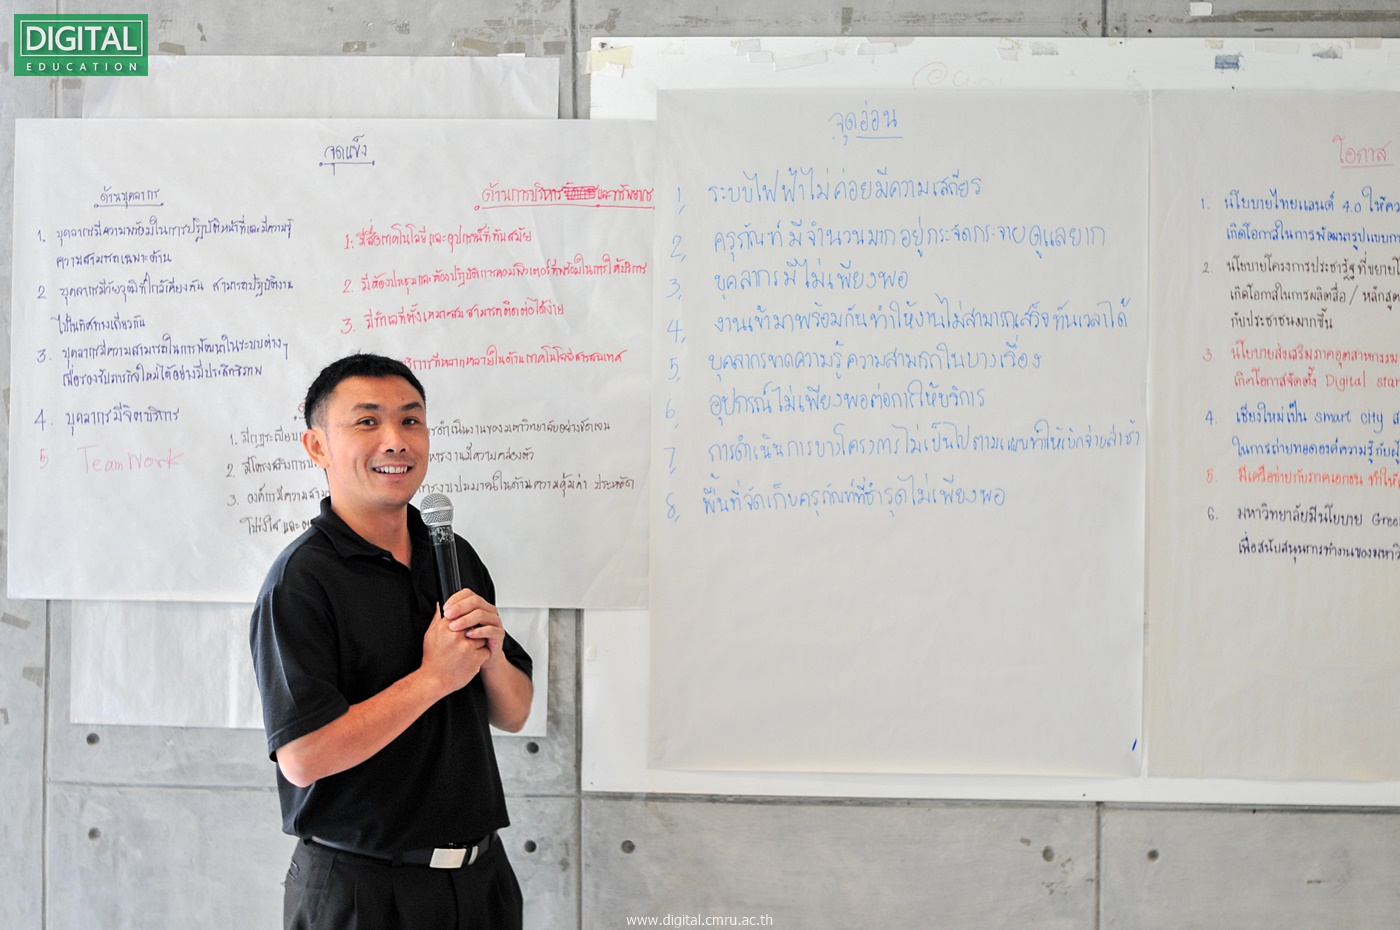 DIGITAL
EDUCATION
จุดแข็ง
ด้านบุคลากร
1. บุคลากรมีความพร้อมในการปฏิบัติหน้าที่และมีความรู้
ความสามารถเฉพาะด้าน
2 บุคลากรมีวัยวุฒิที่ใกล้เคียงกัน สามารถปฏิบัติงาน
ไปในทิศทางเดียวกัน
3. บุคลากรมีความสามารถในการพัฒนาในระบบต่างๆ
เพื่อรองรับภารกิจใหม่ได้อย่างมีประสิทธิภาพ
4. บุคลากรมีจิตบริการ
5 Teamwork
ด้านการบริหาร และทรัพยากร
1. มีสื่อเทคโนโลยีและอุปกรณ์ที่ทันสมัย
2. มีห้องประชุมและห้องปฏิบัติการคอมพิวเตอร์ที่พร้อมในการให้บริการ
3. มีทำเลที่ตั้งเหมาะสม สามารถติดต่อได้ง่าย
บริการที่หลากหลายในด้านเทคโนโลยีสารสนเทศ
1. มีกฎระเบียบ
การดำเนินงานของมหาวิทยาลัยอย่างชัดเจน
2. มีโครงสร้างการบ
หารงานมีความคล่องตัว
3. องค์กรมีความสาม
งบประมาณในด้านความคุ้มค่า ประหยัด
โปร่งใส และ
จุดอ่อน
1. ระบบไฟฟ้าไม่ค่อยมีความเสถียร
2. ครุภัณฑ์มีจำนวนมากอยู่กระจัดกระจายดูแลยาก
3. บุคลากรมีไม่เพียงพอ
4. งานเข้ามาพร้อมกันทำให้งานไม่สามารถเสร็จทันเวลาได้
5. บุคลากรขาดความรู้ความสามารถในบางเรื่อง
6. อุปกรณ์ไม่เพียงพอต่อการให้บริการ
7. การดำเนินการบางโครงการไม่เป็นไปตามแผนทำให้เบิกจ่ายล่าช้า
8. พื้นที่จัดเก็บครุภัณฑ์ที่ชำรุดไม่เพียงพอ
โอกาส
1. นโยบายไทยแลนด์ 4.0 ให้ความ
เกิดโอกาสในการพัฒนารูปแบบการ
2. นโยบายโครงการประชารัฐที่ขยายโ
เกิดโอกาสในการผลิตสื่อ / หลักสูต
กับประชาชนมากขึ้น
3. นโยบายส่งเสริมภาคอุตสาหกรรม
เกิดโอกาสจัดตั้ง Digital star
4. เชียงใหม่เป็น smart city ส
ในการถ่ายทอดองค์ความรู้กับผู้
5. มีเครือข่ายกับภาคเอกชน ทำให้
6. มหาวิทยาลัยมีนโยบาย Gree
เพื่อสนับสนุนการทำงานของมหาวิ
www.digital.cmru.ac.th